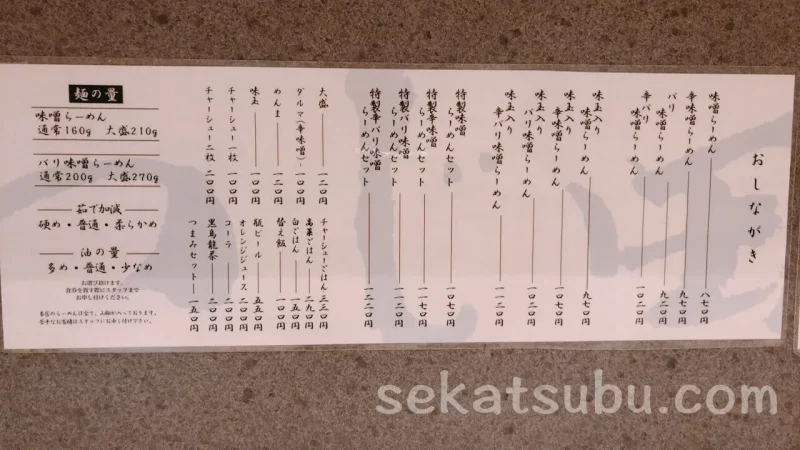 おしながき
味噌らーめん 八七〇円
辛味噌らーめん 九七〇円
バリ味噌らーめん 九二〇円
辛バリ味噌らーめん 一〇二〇円
味玉入り味噌らーめん 九七〇円
味玉入り辛味噌らーめん 一〇七〇円
味玉入りバリ味噌らーめん 一〇二〇円
味玉入り辛バリ味噌らーめん 一一二〇円
特製味噌らーめんセット 一〇七〇円
特製辛味噌らーめんセット 一一七〇円
特製バリ味噌らーめんセット 一一二〇円
特製辛バリ味噌らーめんセット 一二二〇円
大盛 一二〇円
ダルマ(辛味噌) 一〇〇円
めんま 二〇〇円
味玉 一〇〇円
チャーシュー一枚 一〇〇円
チャーシュー二枚 二〇〇円
チャーシューごはん 三三〇円
高菜ごはん 二九〇円
白ごはん 一五〇円
替え飯 一〇〇円
瓶ビール 五五〇円
オレンジジュース 二〇〇円
コーラ 二〇〇円
黒烏龍茶 二〇〇円
つまみセット 一五〇円
麺の量
味噌らーめん
通常160g 大盛210g
バリ味噌らーめん
通常200g 大盛270g
茹で加減
硬め・普通・柔らかめ
油の量
多め・普通・少なめ
お選び頂けます。
食券を渡す際にスタッフまで
お申し付けください。
当店のらーめんは全て、山椒が入っております。
苦手なお客様はスタッフにお申し付け下さい。
sekatsubu.com